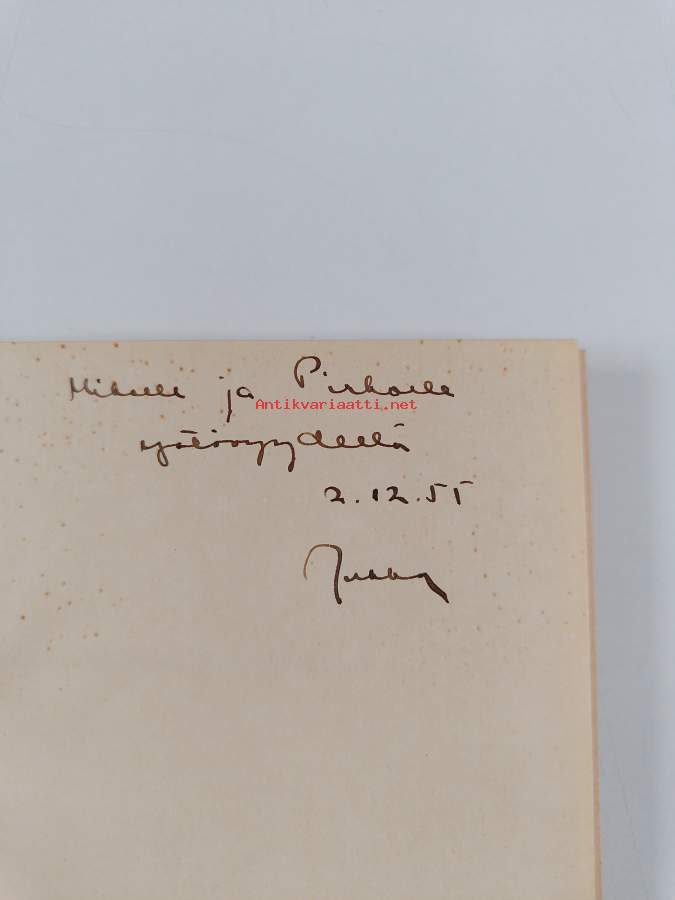 Mikolle ja Pirkolle
Antikvariaatti.net
ystävyydellä
2.12.55
Jukka